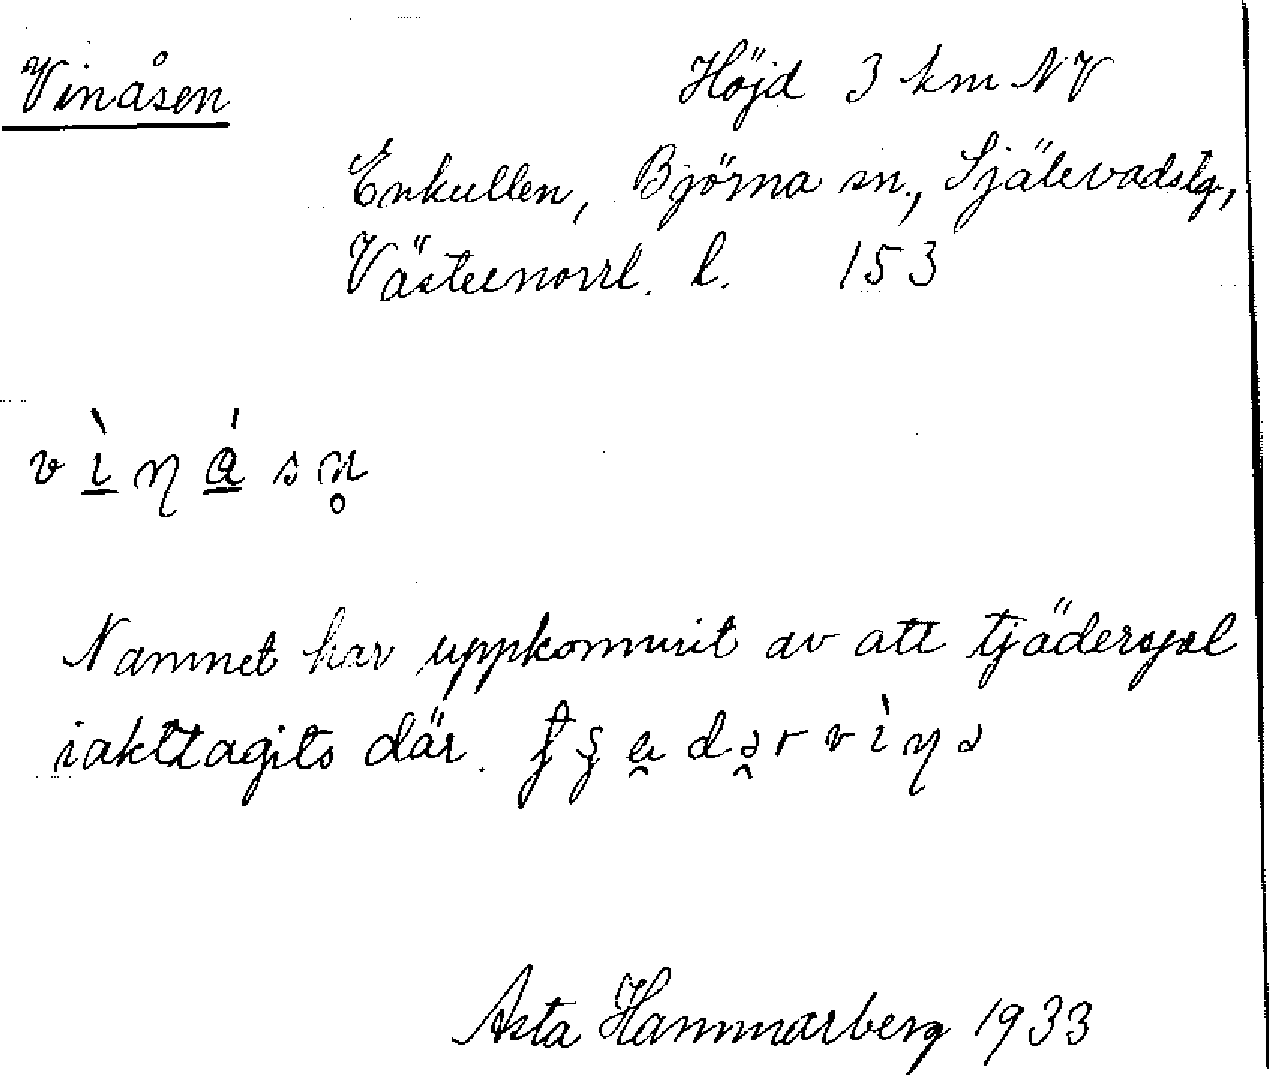 Vinåsen Höjd 3 km NV
Enkullen, Björna sn., Själevadstg,
Västernorrl. l. 153
v ì̱ ŋ á̱ s n̥
Namnet har uppkommit av att tjäderspel
iakttagits där.
Asta Hammarberg 1933